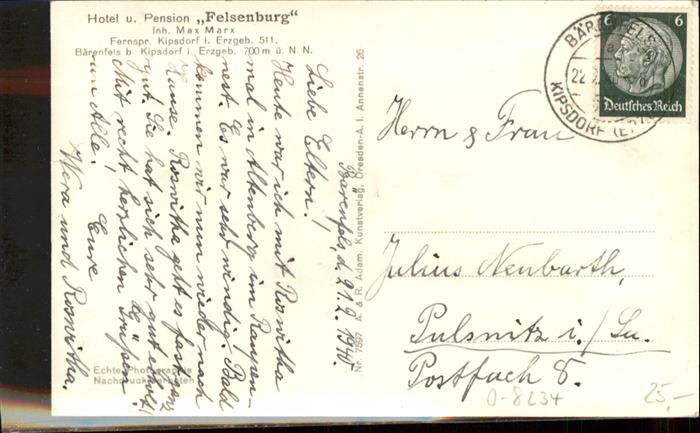 Hotel u. Pension „Felsenburg"
Inh. Max Marx
Fernspr. Kipsdorf i. Erzgeb. 511.
Bärenfels b Kipsdorf i. Erzgeb. 700 m ü. N. N.
Bärenfels, d. 21.2.1940.
Liebe Eltern!
Heute war ich mit Roswitha
mal in Altenberg im Raupen-
nest. Es war sehr windig. Bald
kommen wir nun wieder nach
Hause. Roswitha geht es fast ganz
gut. Sie hat sich sehr gut erholt!
Mit recht herzlichen Grüßen
an Alle!
Eure
Wera und Roswitha.
Echte Photographie
Nachdruck verboten
Nr. 7597 A. & R. Adam, Kunstverlag, Dresden-A. I. Annenstr. 26
6 6
Deutsches Reich
BÄRENFELS
22.2.
KIPSDORF
Herrn & Frau
Julius Neubarth,
Pulsnitz i./Sa.
Postfach 8.
0-8234
25,-